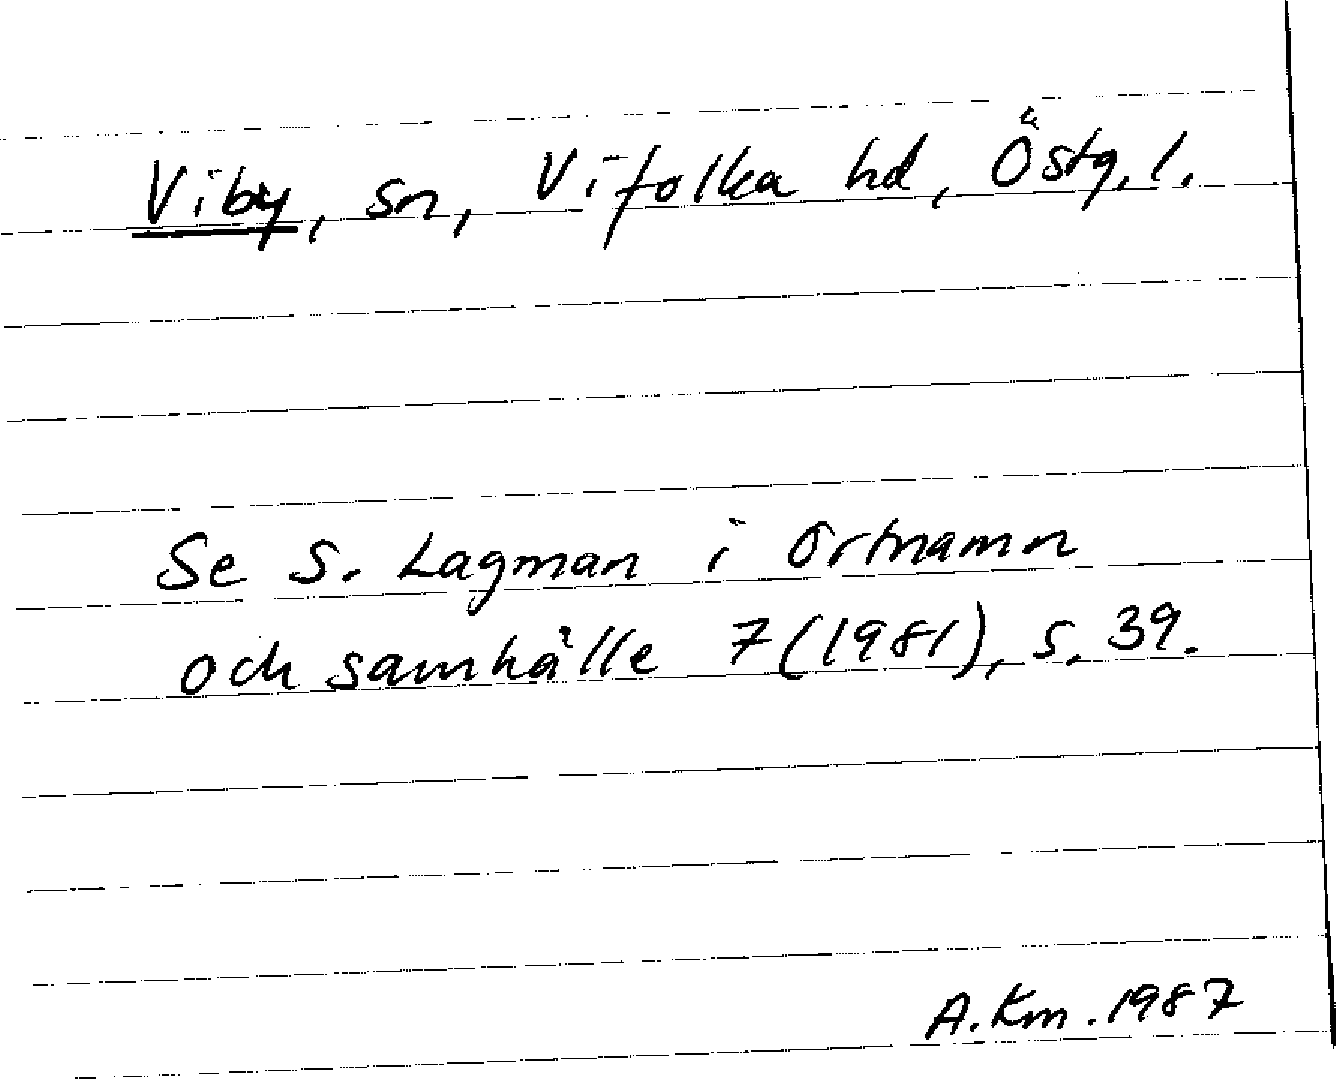 Viby, sn, Vifolka hd, Östg. l.
Se S. Lagman i Ortnamn
och samhälle 7 (1981), s. 39.
A. Km. 1987